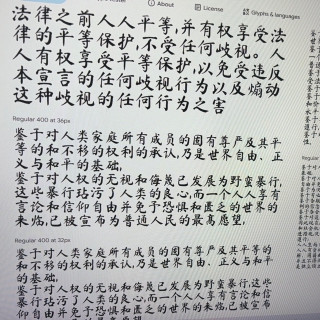 About
License
Glyphs & languages
法律之前人人平等,并有权享受法
律的平等保护,不受任何歧视。人
人有权享受平等保护,以免受违反
本宣言的任何歧视行为以及煽动
这种歧视的任何行为之害
Regular 400 at 36px
鉴于对人类家庭所有成员的固有尊严及其平
等的和不移的权利的承认,乃是世界自由、正
义与和平的基础,
鉴于对人权的无视和侮蔑已发展为野蛮暴行,
这些暴行玷污了人类的良心,而一个人人享有
言论和信仰自由并免予恐惧和匮乏的世界的
来临,已被宣布为普通人民的最高愿望,
Regular 400 at 32px
鉴于对人类家庭所有成员的固有尊严及其平等的
和不移的权利的承认,乃是世界自由、正义与和平
的基础,
鉴于对人权的无视和侮蔑已发展为野蛮暴行,这些
暴行玷污了人类的良心,而一个人人享有言论和信
仰自由并免予恐惧和匮乏的世界的来临,已被宣布